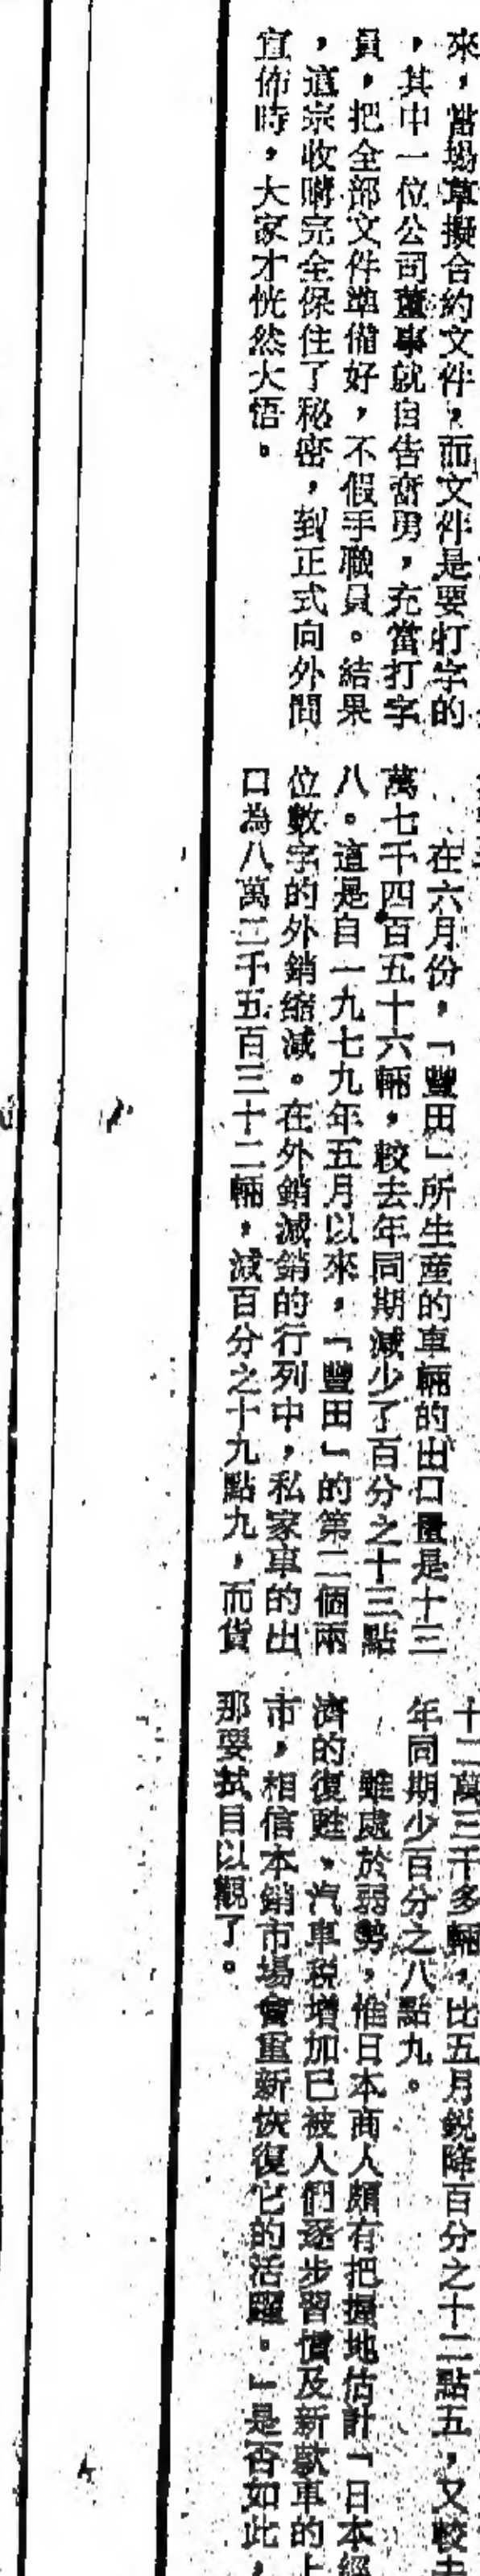 來，當場草擬合約文件，而文件是要打字的
，其中一位公司董事就自告奮勇，充當打字
員，把全部文件準備好，不假手職員。結果
，這宗收購完全保住了秘密，到正式向外間
宣佈時，大家才恍然大悟。
在六月份，「豐田」所生產的車輛的出口量是十三
萬七千四百五十六輛，較去年同期減少了百分之十三點
八。這是自一九七九年五月以來，「豐田」的第二個兩
位數字的外銷縮減。在外銷減銷的行列中，私家車的出
口為八萬三千五百三十二輛，減百分之十九點九，而貨
十二萬三千多輛，比五月銳降百分之十二點五，又較去
年同期少百分之八點九。
雖處於弱勢，惟日本商人頗有把握地估計「日本經
濟的復甦，汽車稅增加已被人們逐步習慣及新款車的上
市，相信本銷市場會重新恢復它的活躍。」是否如此，
那要拭目以觀了。